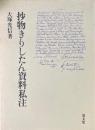 大塚光信著
抄物きりしたん資料私注
清文堂